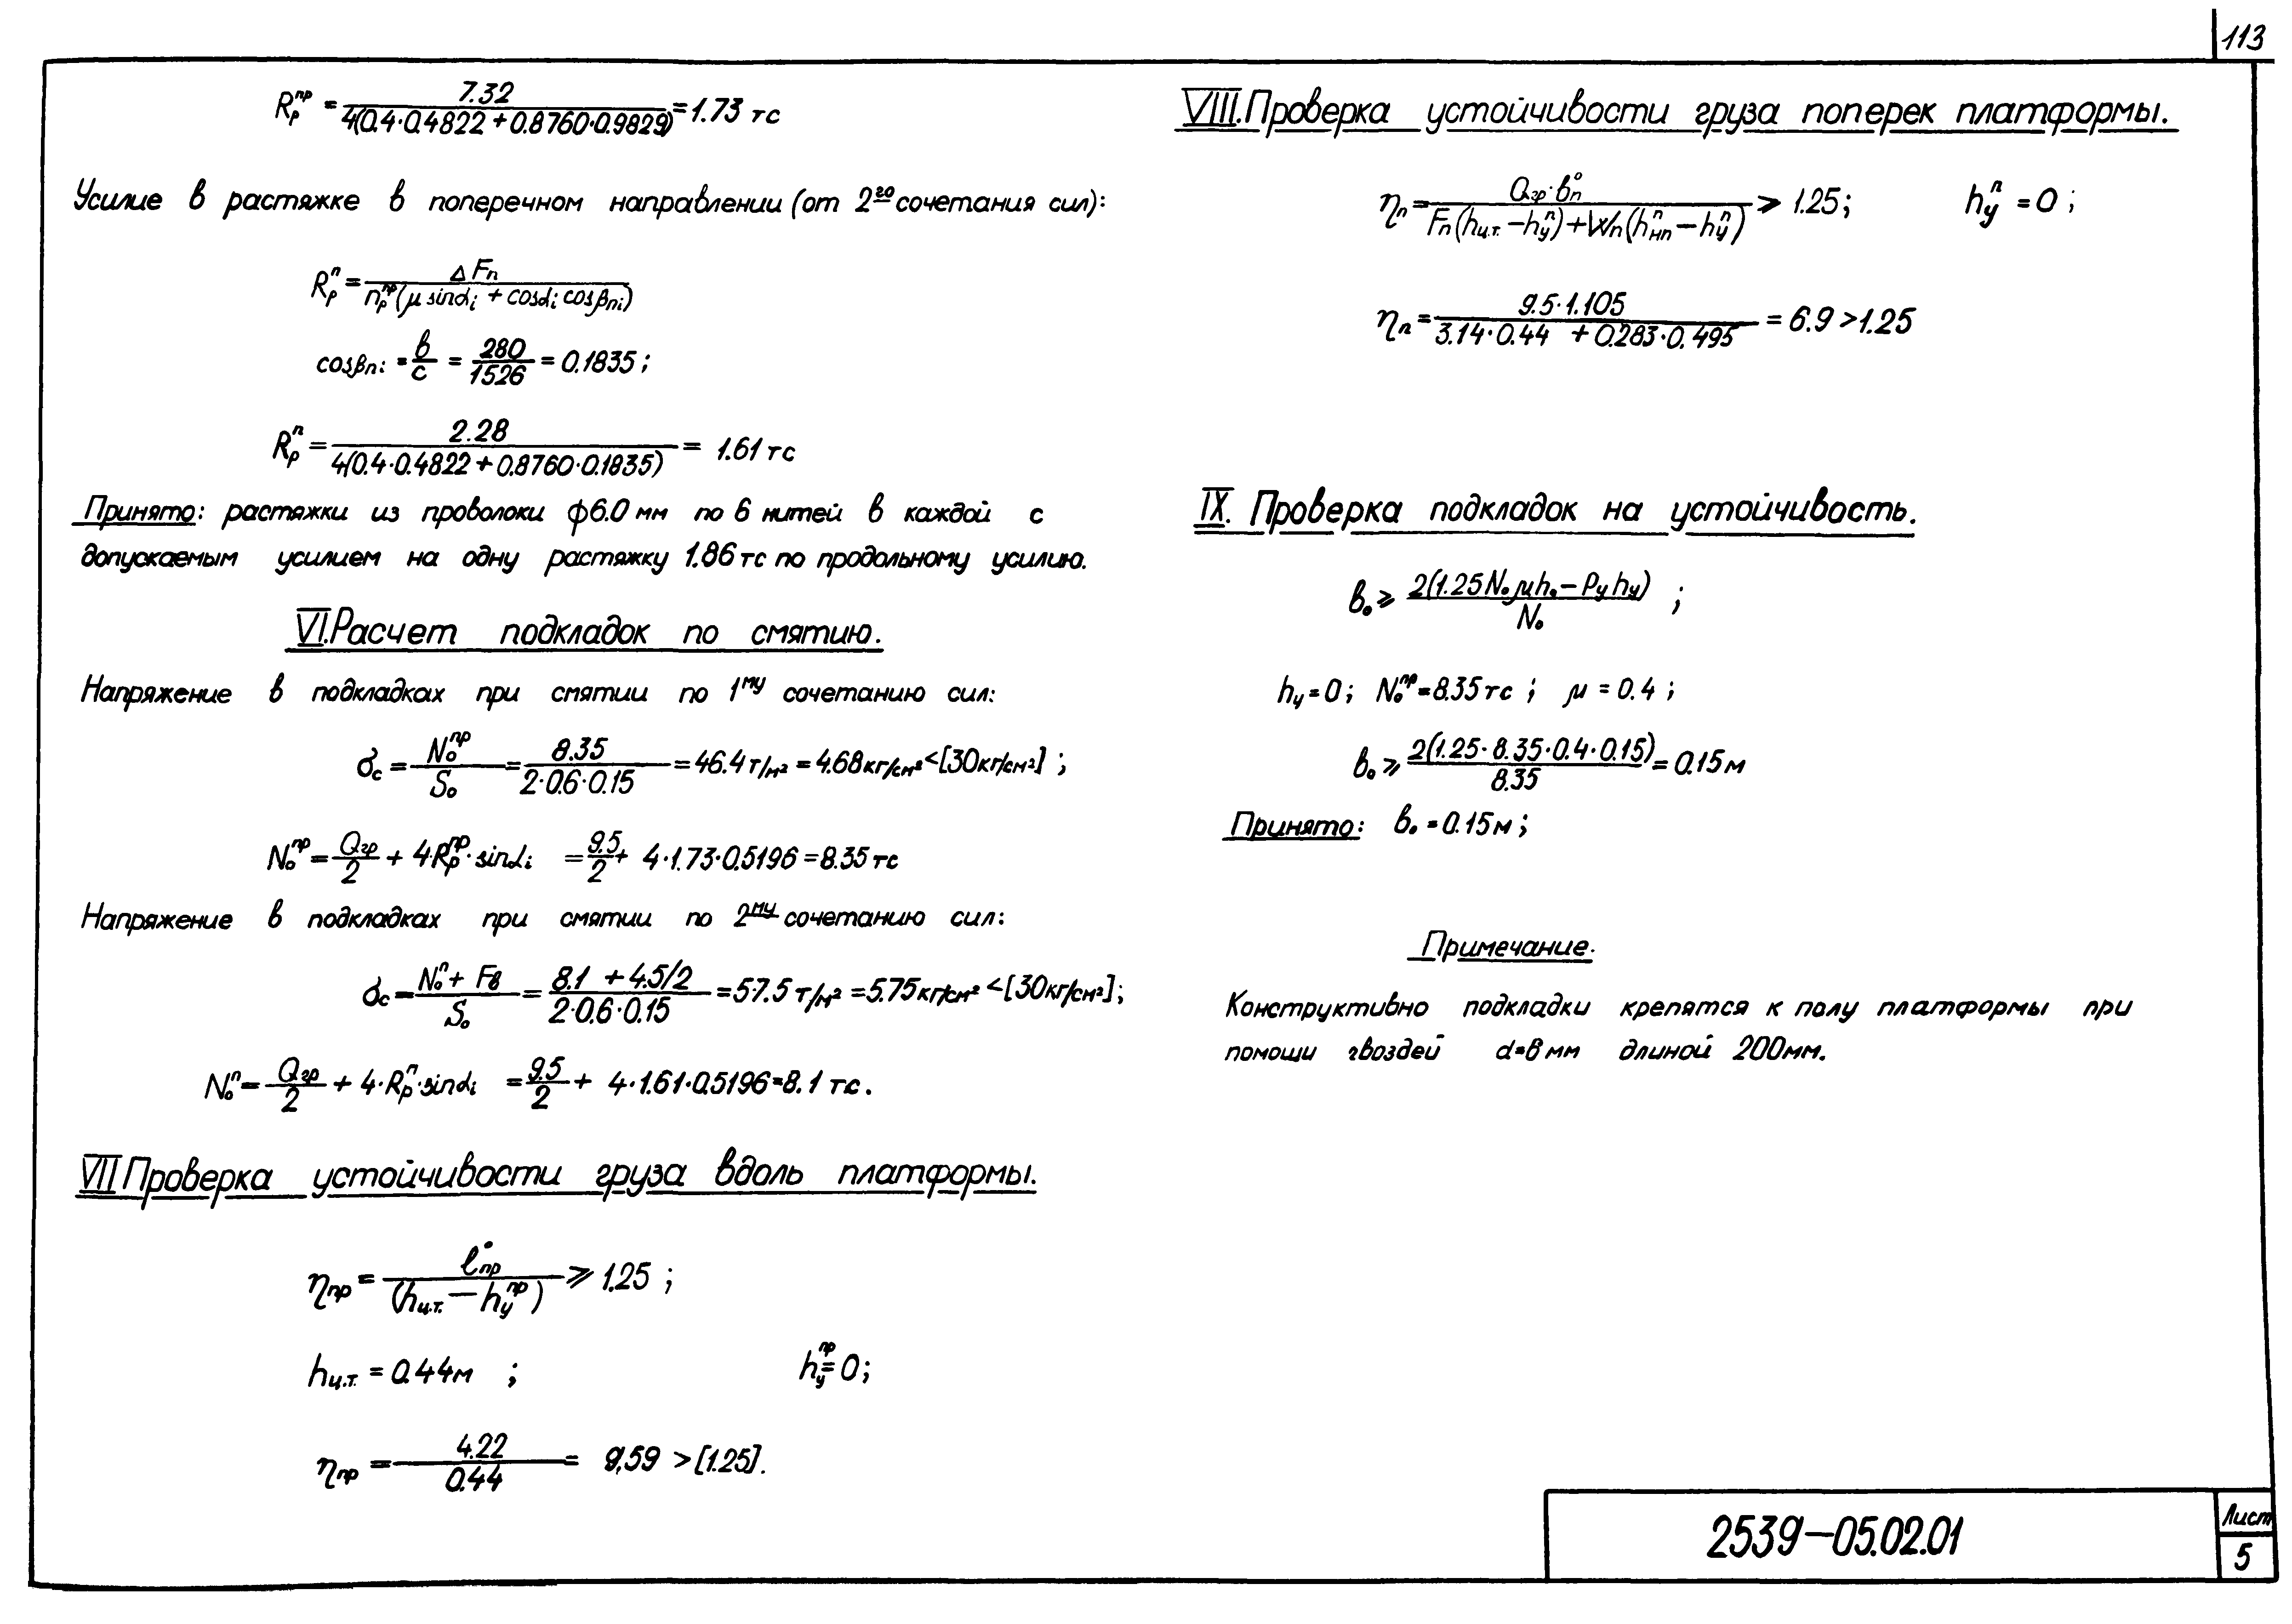 113
R_р^пр = 7.32 / 4(0.4·0.4822 + 0.8760·0.9829) = 1.73 тс
Усилие в растяжке в поперечном направлении (от 2го сочетания сил):
R_р^п = ΔFп / n_р^пр (μ sinαi + cosαi cosβпi)
cosβпi = в/с = 280/1526 = 0.1835;
R_р^п = 2.28 / 4(0.4·0.4822 + 0.8760·0.1835) = 1.61 тс
Принято: растяжки из проволоки ф6.0 мм по 6 нитей в каждой с
допускаемым усилием на одну растяжку 1.86 тс по продольному усилию.
VI. Расчет подкладок по смятию.
Напряжение в подкладках при смятии по 1му сочетанию сил:
σc = N₀^пр / S₀ = 8.35 / 2·0.6·0.15 = 46.4 т/м² = 4.68 кг/см² < [30 кг/см²];
N₀^пр = Qгр/2 + 4·R_р^пр·sinαi = 9.5/2 + 4·1.73·0.5196 = 8.35 тс
Напряжение в подкладках при смятии по 2му сочетанию сил:
σc = N₀^п + Fв / S₀ = 8.1 + 4.5/2 / 2·0.6·0.15 = 57.5 т/м² = 5.75 кг/см² < [30 кг/см²];
N₀^п = Qгр/2 + 4·R_р^п·sinαi = 9.5/2 + 4·1.61·0.5196 = 8.1 тс.
VII Проверка устойчивости груза вдоль платформы.
ηпр = ℓ°пр / (hц.т. − h_у^пр) ⩾ 1.25;
hц.т. = 0.44 м; h_у^пр = 0;
ηпр = 4.22 / 0.44 = 9,59 > [1.25].
VIII. Проверка устойчивости груза поперек платформы.
ηп = Qгр·в°п / Fп(hц.т. − h_у^п) + Wп(h_нп^п − h_у^п) ⩾ 1.25; h_у^п = 0;
ηп = 9.5·1.105 / 3.14·0.44 + 0.283·0.495 = 6.9 > 1.25
IX. Проверка подкладок на устойчивость.
в₀ ⩾ 2(1.25 N₀ μ h₀ − Pу hу) / N₀;
hу = 0; N₀^пр = 8.35 тс; μ = 0.4;
в₀ ⩾ 2(1.25·8.35·0.4·0.15) / 8.35 = 0.15 м
Принято: в₀ = 0.15 м;
Примечание.
Конструктивно подкладки крепятся к полу платформы при
помощи гвоздей d=8 мм длиной 200 мм.
2539–05.02.01
Лист
5